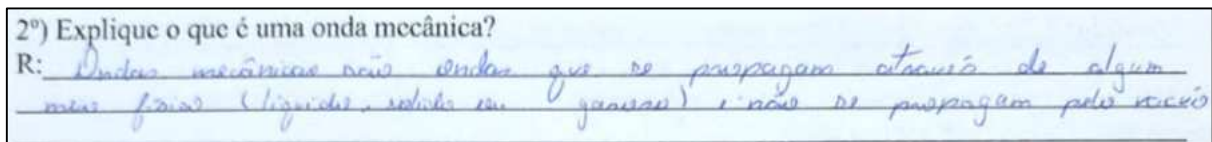 2º) Explique o que é uma onda mecânica?
R: Ondas mecânicas são ondas que se propagam através de algum
meio físico (líquido, solido ou gasoso) e não se propagam pelo vacuo